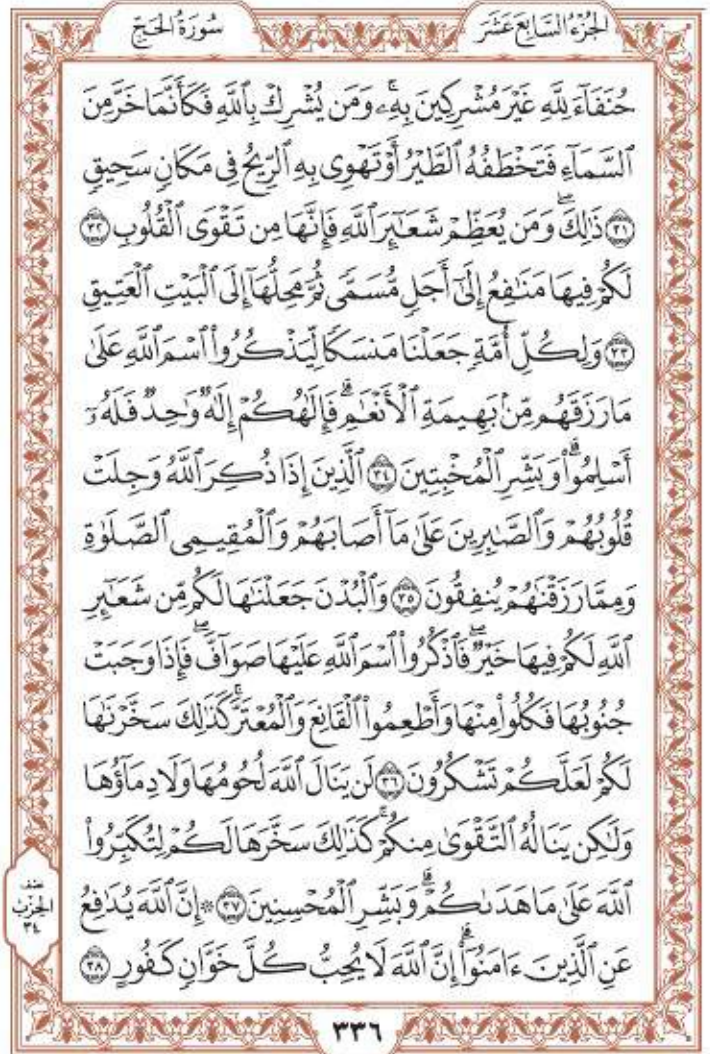 الجزء السابع عشر
سورة الحج
حُنَفَآءَ لِلَّهِ غَيْرَ مُشْرِكِينَ بِهِۦۚ وَمَن يُشْرِكْ بِٱللَّهِ فَكَأَنَّمَا خَرَّ مِنَ
ٱلسَّمَآءِ فَتَخْطَفُهُ ٱلطَّيْرُ أَوْ تَهْوِى بِهِ ٱلرِّيحُ فِى مَكَانٍ سَحِيقٍ
﴿٣١﴾ ذَٰلِكَۖ وَمَن يُعَظِّمْ شَعَٰٓئِرَ ٱللَّهِ فَإِنَّهَا مِن تَقْوَى ٱلْقُلُوبِ ﴿٣٢﴾
لَكُمْ فِيهَا مَنَٰفِعُ إِلَىٰٓ أَجَلٍ مُّسَمًّى ثُمَّ مَحِلُّهَآ إِلَى ٱلْبَيْتِ ٱلْعَتِيقِ
﴿٣٣﴾ وَلِكُلِّ أُمَّةٍ جَعَلْنَا مَنسَكًا لِّيَذْكُرُوا۟ ٱسْمَ ٱللَّهِ عَلَىٰ
مَا رَزَقَهُم مِّنۢ بَهِيمَةِ ٱلْأَنْعَٰمِۗ فَإِلَٰهُكُمْ إِلَٰهٌ وَٰحِدٌ فَلَهُۥٓ
أَسْلِمُوا۟ۗ وَبَشِّرِ ٱلْمُخْبِتِينَ ﴿٣٤﴾ ٱلَّذِينَ إِذَا ذُكِرَ ٱللَّهُ وَجِلَتْ
قُلُوبُهُمْ وَٱلصَّٰبِرِينَ عَلَىٰ مَآ أَصَابَهُمْ وَٱلْمُقِيمِى ٱلصَّلَوٰةِ
وَمِمَّا رَزَقْنَٰهُمْ يُنفِقُونَ ﴿٣٥﴾ وَٱلْبُدْنَ جَعَلْنَٰهَا لَكُم مِّن شَعَٰٓئِرِ
ٱللَّهِ لَكُمْ فِيهَا خَيْرٌۖ فَٱذْكُرُوا۟ ٱسْمَ ٱللَّهِ عَلَيْهَا صَوَآفَّۖ فَإِذَا وَجَبَتْ
جُنُوبُهَا فَكُلُوا۟ مِنْهَا وَأَطْعِمُوا۟ ٱلْقَانِعَ وَٱلْمُعْتَرَّۚ كَذَٰلِكَ سَخَّرْنَٰهَا
لَكُمْ لَعَلَّكُمْ تَشْكُرُونَ ﴿٣٦﴾ لَن يَنَالَ ٱللَّهَ لُحُومُهَا وَلَا دِمَآؤُهَا
وَلَٰكِن يَنَالُهُ ٱلتَّقْوَىٰ مِنكُمْۚ كَذَٰلِكَ سَخَّرَهَا لَكُمْ لِتُكَبِّرُوا۟
ٱللَّهَ عَلَىٰ مَا هَدَىٰكُمْۗ وَبَشِّرِ ٱلْمُحْسِنِينَ ﴿٣٧﴾ ۞ إِنَّ ٱللَّهَ يُدَٰفِعُ
عَنِ ٱلَّذِينَ ءَامَنُوٓا۟ۗ إِنَّ ٱللَّهَ لَا يُحِبُّ كُلَّ خَوَّانٍ كَفُورٍ ﴿٣٨﴾
نصف
الحزب
٣٤
٣٣٦